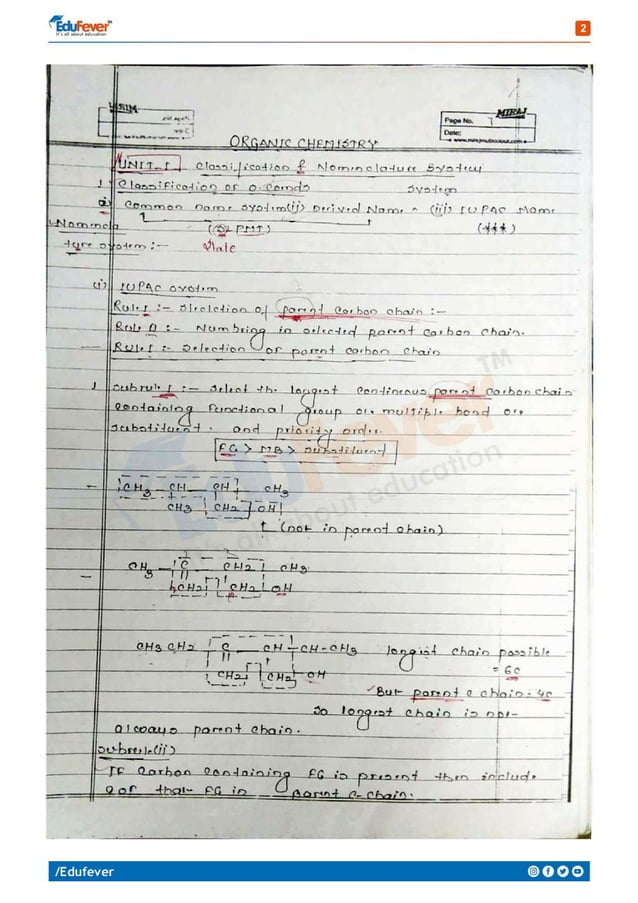 EduFever™
It's all about education
2
MIRAJ
Page No. 1
MIRAJ
Date:
www.mirajmultycolour.com
ORGANIC CHEMISTRY
UNIT-I Classification & Nomenclature System
1 Classification of O. Comds System
Common name system (ii) Derived Name (iii) IUPAC Name
Nomencla (PMT) (***)
ture system :-
(i) IUPAC System
Rule I :- Slelction of parent carbon chain :-
Rule II :- Numbring in selected parent carbon chain.
Rule I :- Selection of parent carbon chain
1 Subrule I :- Select the longest continous parent carbon chain
containing functional group or multible bond or
substituent. and priority order.
FG > MB > substituent
CH3 CH CH CH3
CH3 CH2 OH
↑ (not in parent chain)
CH3 — C — CH2 CH3
|| 
CH2 CH2 OH
CH3 CH2 C — CH — CH-CH3 longist chain possible
|| = 6C
CH2 CH2 OH
But parent c chain = 4C
So longest chain is not
always parent chain.
Subrule (ii)
IF Carbon containing FG is present then include
C of that FG in parint C-chain.
EduFever™
all about education
/Edufever